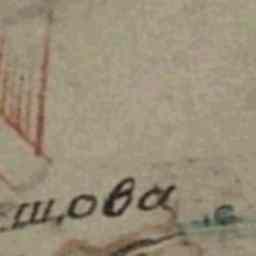 шова